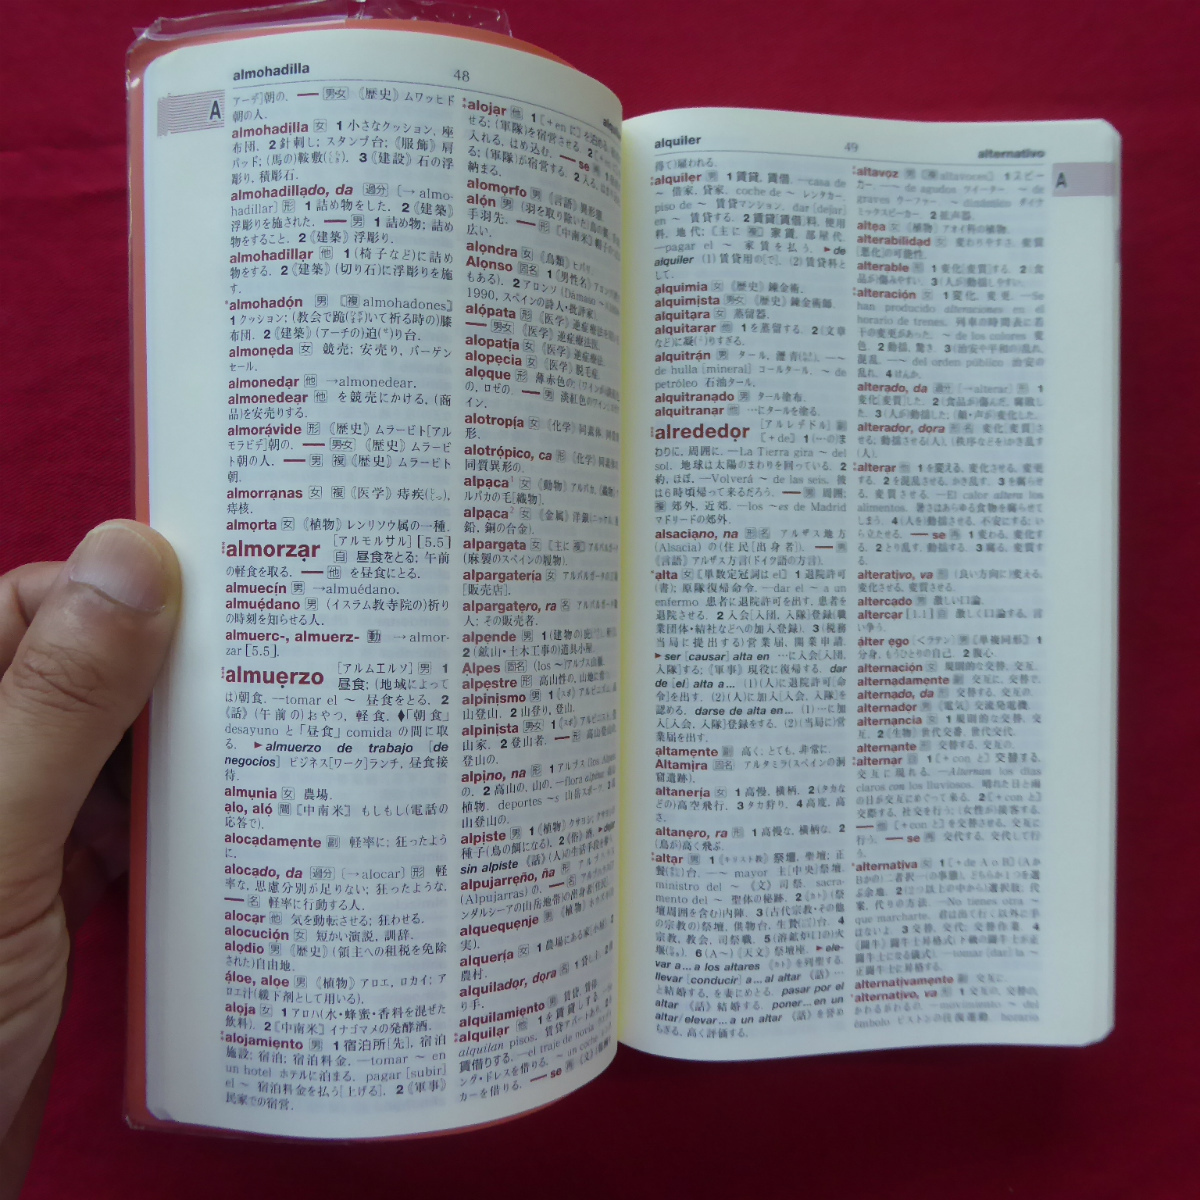 almohadilla
48
A
アーデ]朝の. ━ 男女 《歴史》 ムワッヒド
朝の人.
almohadilla 女 1 小さなクッション, 座
布団. 2 針刺し; スタンプ台; 《服飾》 肩
パッド; (馬の)鞍敷. 3 《建設》 石の浮
彫り, 積彫石.
almohadillado, da 過分 [→almo-
hadillar] 形 1 詰め物をした. 2 《建築》
浮彫りを施された. ━ 男 1 詰め物; 詰め
物をすること. 2 《建築》 浮彫り.
almohadillar 他 1 (椅子などに)詰め
物をする. 2 《建築》 (切り石)に浮彫りを施
す.
almohadón 男 [複 almohadones]
1 クッション; (教会で跪いて祈る時の)膝
布団. 2 《建築》 (アーチの)迫り台.
almoneda 女 競売; 安売り, バーゲン
セール.
almonedar 他 →almonedear.
almonedear 他 を競売にかける, (商
品)を安売りする.
almorávide 形 《歴史》 ムラービト[アル
モラビデ]朝の. ━ 男女 《歴史》 ムラービ
ト朝の人. ━ 男 複 《歴史》 ムラービト
朝.
almorranas 女 複 《医学》 痔疾,
痔核.
almorta 女 《植物》 レンリソウ属の一種.
almorzar [アルモルサル] [5.5]
自 昼食をとる; 午前
の軽食を取る. ━ 他 を昼食にとる.
almuecín 男 →almuédano.
almuédano 男 (イスラム教寺院の)祈り
の時刻を知らせる人.
almuerc-, almuerz- 動 →almor-
zar [5.5].
almuerzo [アルムエルソ] 男 1
昼食; (地域によって
は)朝食. —tomar el ~ 昼食をとる. 2
《話》 (午前の)おやつ, 軽食. ♦「朝食」
desayuno と「昼食」 comida の間に取
る. ►almuerzo de trabajo [de
negocios] ビジネス[ワーク]ランチ, 昼食接
待.
almunia 女 農場.
alo, aló 間 [中南米] もしもし(電話の
応答で).
alocadamente 副 軽率に; 狂ったよう
に.
alocado, da 過分 [→alocar] 形 軽
率な, 思慮分別が足りない; 狂ったような.
━ 名 軽率に行動する人.
alocar 他 気を動転させる; 狂わせる.
alocución 女 短かい演説, 訓辞.
alodio 男 《歴史》 (領主への租税を免除
された)自由地.
áloe, aloe 男 《植物》 アロエ, ロカイ; ア
ロエ汁(緩下剤として用いる).
aloja 女 1 アロハ(水・蜂蜜・香料を混ぜた
飲料). 2 [中南米] イナゴマメの発酵酒.
alojamiento 男 1 宿泊所[先], 宿泊
施設; 宿泊; 宿泊料金. —tomar ~ en
un hotel ホテルに泊まる. pagar [subir]
el ~ 宿泊料金を払う[上げる]. 2 《軍事》
民家での宿営.
alojar 他 1 [+en に]を泊める,
せる; (軍隊)を宿営させる. 2
入れる, はめ込む. ━ se
る; (軍隊が)宿営する. 2
納まる.
alomorfo 男 《言語》 異形態.
alón 男 (羽を取り除いた)鳥の翼,
手羽先. ━ 形 [中南米]
広い.
alondra 女 《鳥類》 ヒバリ.
Alonso 固名 1 《男性名》 アロンソ
もある). 2 アロンソ (Dámaso
1990, スペインの詩人・批評家).
alópata 形 《医学》 逆症療法
━ 男女 《医学》 逆症療法医.
alopatía 女 《医学》 逆症療法.
alopecia 女 《医学》 脱毛症.
aloque 形 薄赤色の; (ワインが)
の, ロゼの. ━ 男 淡紅色の
イン.
alotropía 女 《化学》 同素体,
形.
alotrópico, ca 形 《化学》
同質異形の.
alpaca¹ 女 《動物》 アルパカ,
ルパカの毛[織物].
alpaca² 女 《金属》 洋銀(ニッケル,
鉛, 銅の合金).
alpargata 女 [主に複] アルパルガータ
(麻製のスペインの履物).
alpargatería 女 アルパルガータの
[販売店].
alpargatero, ra 名 アルパルガータ
人; その販売者.
alpende 男 1 (建物の)
2 (鉱山・土木工事の)道具小屋.
Alpes 固名 (los ~)アルプス山脈.
alpestre 形 高山性の, 山地の.
alpinismo 男 1 アルピニズム,
山登山. 2 山登り, 登山.
alpinista 男女 1 アルピニスト,
山家. 2 登山者. ━ 形
登山の.
alpino, na 形 1 アルプス(los Alpes)
の. 2 高山の, 山の. —flora alpina 高山
植物. deportes ~s 山岳スポーツ.
山登山の.
alpiste 男 1 《植物》 クサヨシ,
種子(鳥の餌になる). 2
sin alpiste 《話》 (人の)生活手段を
alpujarreño, ña 形
(Alpujarras)の. ━ 名
ンダルシーアの山岳地帯)の出身者
alquequenje 男 《植物》
実).
alquería 女 1 農場にある家
農村.
alquilador, dora 名 1 貸し
り手.
alquilamiento 男 賃貸, 賃借.
alquilar 他 1 を賃貸しする. —
alquilan pisos. 賃貸アパートあり.
賃借りする. —el traje de novia
ング・ドレスを借りる. ~ un coche
カーを借りる. ━ se
alquiler
49
alternativo
A
得て)雇われる.
alquiler 男 1 賃貸, 賃借. —casa de
~ 借家, 貸家. coche de ~ レンタカー.
piso de ~ 賃貸マンション. dar [dejar]
en ~ 賃貸する. 2 賃貸[賃借]料, 使用
料, 地代; [主に 複] 家賃, 部屋代.
—pagar el ~ 家賃を払う. ►de
alquiler (1) 賃貸用の[で]. (2) 賃貸料と
して.
alquimia 女 《歴史》 錬金術.
alquimista 男女 《歴史》 錬金術師.
alquitara 女 蒸留器.
alquitarar 他 1 を蒸留する. 2 (文章
など)に凝りすぎる.
alquitrán 男 タール, 瀝青. —~
de hulla [mineral] コールタール. ~ de
petróleo 石油タール.
alquitranado 男 タール塗布.
alquitranar 他 …にタールを塗る.
alrededor [アルレデドル] 副
[+de] 1 (…の)ま
わりに, 周囲に. —La Tierra gira ~ del
sol. 地球は太陽のまわりを回っている. 2
約, ほぼ. —Volverá ~ de las seis. 彼
は6時頃帰って来るだろう. ━ 男 周囲;
複 郊外, 近郊. —los ~es de Madrid
マドリードの郊外.
alsaciano, na 形 名 アルザス地方
(Alsacia) の(住民[出身者]). ━ 男
《言語》 アルザス方言(ドイツ語の方言).
alta 女 [単数定冠詞は el] 1 退院許可
(書); 原隊復帰命令. —dar el ~ a un
enfermo 患者に退院許可を出す, 患者を
退院させる. 2 入会[入団, 入隊]登録(職
業団体・結社などへの加入登録). 3 (税務
当局に提出する)営業届, 開業申請.
►ser [causar] alta en …に入会[入団,
入隊]する; 《軍事》 現役に復帰する. dar
de [el] alta a... (1) (人)に退院許可[命
令]を出す. (2) (人)に加入[入会, 入隊]を
認める. darse de alta en... (1) …に加
入[入会, 入隊]登録をする. (2) (当局に)営
業届を出す.
altamente 副 高く; とても, 非常に.
Altamira 固名 アルタミラ(スペインの洞
窟遺跡).
altanería 女 1 高慢, 横柄. 2 (タカな
どの)高空飛行. 3 タカ狩り. 4 高度, 高
さ.
altanero, ra 形 1 高慢な, 横柄な. 2
(鳥が)高く飛ぶ.
altar 男 1 《キリスト教》 祭壇, 聖壇; 正
餐台. —~ mayor 主[中央]祭壇.
ministro del ~ 《文》 司祭. sacra-
mento del ~ 聖体の秘跡. 2 《カト》 (祭
壇周囲を含む)内陣. 3 (古代宗教・その他
の宗教の)祭壇, 供物台, 生贄台. 4
宗教, 教会, 司祭職. 5 (溶鉱炉の)火
堰. 6 (A~) 《天文》 祭壇座. ►ele-
var a... a los altares 《カト》 を列聖する.
llevar [conducir] a... al altar 《話》 …
と結婚する, を妻にめとる. pasar por el
altar 《話》 結婚する. poner... en un
altar/elevar... a un altar 《話》 を誉め
ちぎる, 高く評価する.
altavoz 男 [複 altavoces] 1 スピー
カー. —~ de agudos ツイーター. ~ de
graves ウーファー. ~ dinámico ダイナ
ミックスピーカー. 2 拡声器.
altea 女 《植物》 アオイ科の植物.
alterabilidad 女 変わりやすさ, 変質
[悪化]の可能性.
alterable 形 1 変化[変質]する. 2 (食
品が)傷みやすい. 3 (人が)動揺しやすい.
alteración 女 1 変化, 変更. —Se
han producido alteraciones en el
horario de trenes. 列車の時間表に若
干の変更があった. ~ de los colores 変
色. 2 動揺, 驚き. 3 治安や平和の乱れ,
混乱. —~ del orden público 治安の
乱れ. 4 けんか.
alterado, da 過分 [→alterar] 形 1
変化[変質]した. 2 (食品が)傷んだ, 腐敗し
た. 3 (人が)動揺した; (顔・声が)変化した.
alterador, dora 形 名 変化[変質]さ
せる; 動揺させる(人), (秩序などを)かき乱す
(人).
alterar 他 1 を変える, 変化させる, 変更
する. 2 を混乱させる, かき乱す. 3 を腐らせ
る, 変質させる. —El calor altera los
alimentos. 暑さはあらゆる食物を腐らせて
しまう. 4 (人)を動揺させる, 不安にする; い
ら立たせる. ━ se 再 1 変わる, 変化す
る. 2 とり乱す, 動揺する. 3 腐る, 変質す
る.
alterativo, va 形 (良い方向に)変える,
変化させる, 変質させる.
altercado 男 激しい口論.
altercar [1.1] 自 激しく口論する, 言
い争う.
álter ego 〈<ラテン〉 男 [単複同形] 1
分身, もうひとりの自己. 2 腹心.
alternación 女 規則的な交替, 交互.
alternadamente 副 交互に, 交替で.
alternado, da 形 交替する, 交互の.
alternador 男 《電気》 交流発電機.
alternancia 女 1 規則的な交替, 交
互. 2 《生物》 世代交番, 世代交代.
alternante 形 交替する, 交互の.
alternar 自 1 [+con と] 交替する,
交互に現れる. —Alternan los días
claros con los lluviosos. 晴れた日と雨
の日が交互にめぐって来る. 2 [+con と]
交際する, 社交を行う; (女性が)接客する.
━ 他 [+con と]を交替させる, 交互に
行う. ━ se 再 交代する, 交代して行
う.
alternativa 女 1 [+de A o B] (Aか
Bかの)二者択一(の事態), どちらか1つを選
ぶ余地. 2 (2つ以上の中から)選択肢, 代
案, 代りの方法. —No tienes otra ~
que marcharte. 君は出て行く以外に手
はないよ. 3 交替, 交代; 交替作業. 4
《闘牛》 闘牛士昇格式(下級の闘牛士が正
闘牛士になる儀式). —tomar [dar] la ~
正闘牛士に昇格する.
alternativamente 副 交互に.
alternativo, va 形 1 交互の, 交替の,
かわるがわるの. —movimiento ~ del
émbolo ピストンの往復運動. horario